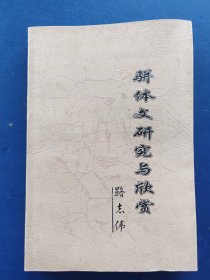 骈体文研究与欣赏
路志伟